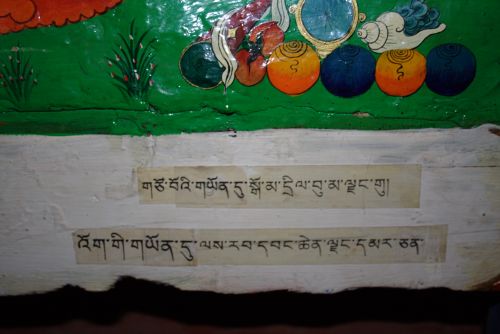 གཙོ་བོའི་གཡོན་དུ་སྒོ་མ་དྲིལ་བུ་མ་ལྗང་གུ།
འོག་གི་གཡོན་དུ་ལས་རབ་དབང་ཆེན་ལྗང་དམར་ཅན་